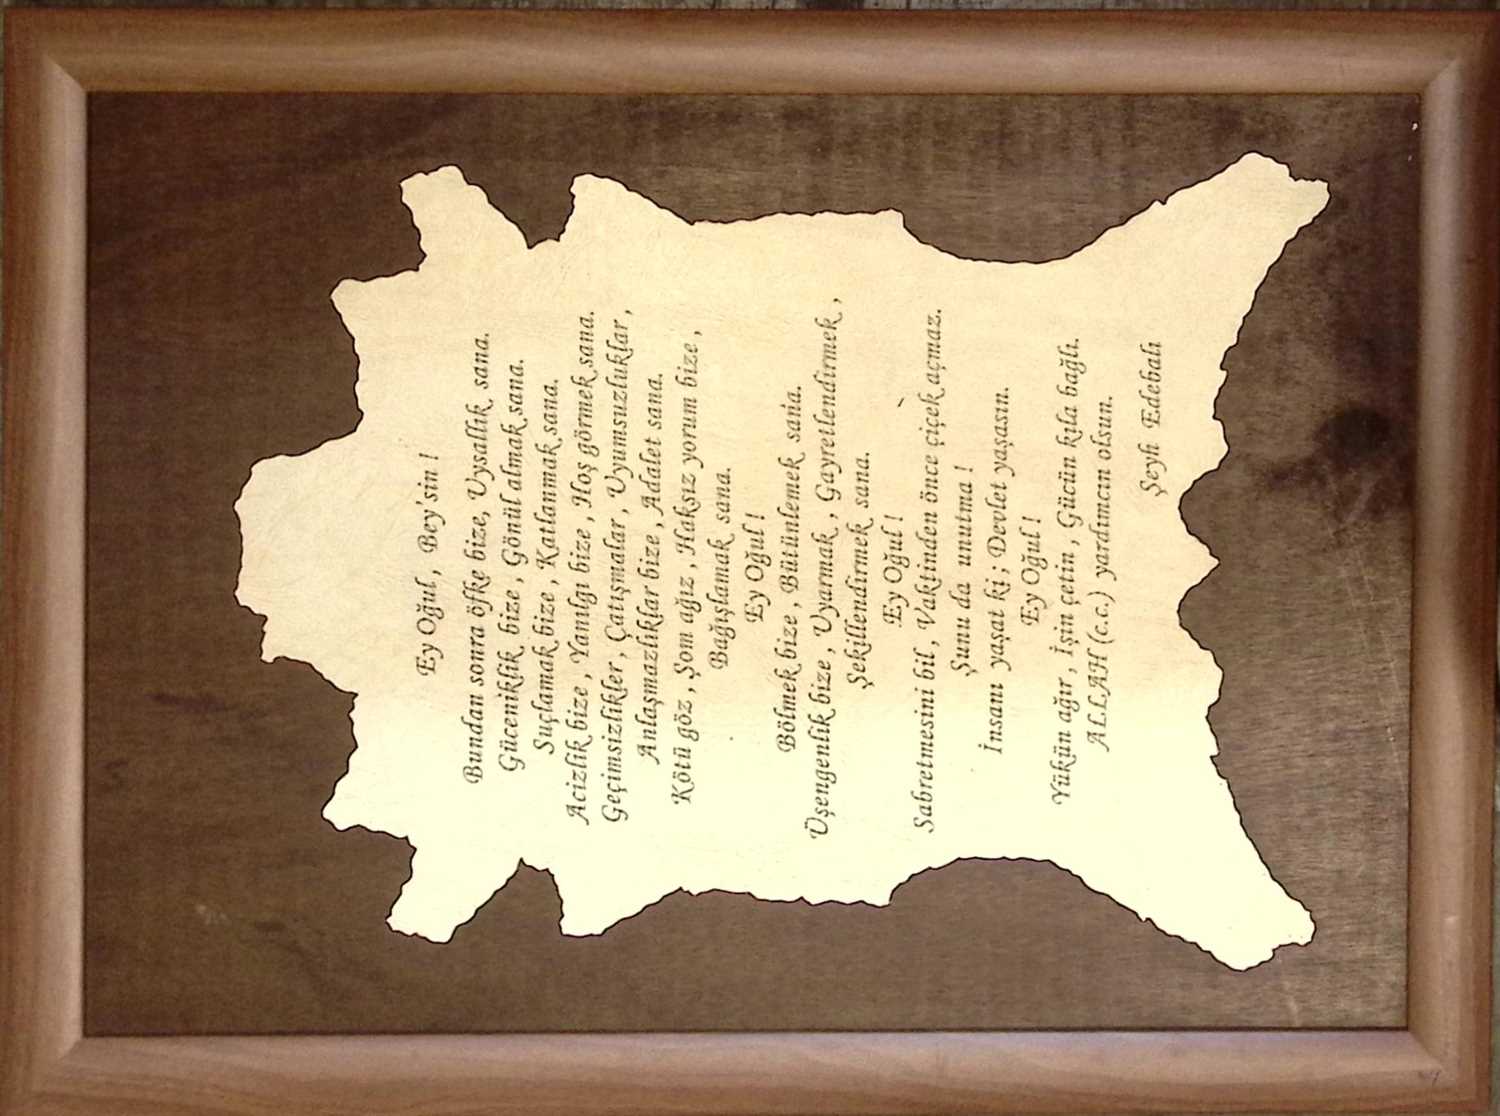 Ey Oğul , Bey'sin !
Bundan sonra öfke bize, Uysallık sana.
Güceniklik bize , Gönül almak sana.
Suçlamak bize , Katlanmak sana.
Acizlik bize , Yanılgı bize , Hoş görmek sana.
Geçimsizlikler , Çatışmalar , Uyumsuzluklar ,
Anlaşmazlıklar bize , Adalet sana.
Kötü göz , Şom ağız , Haksız yorum bize ,
Bağışlamak sana.
Ey Oğul !
Bölmek bize , Bütünlemek sana.
Üşengenlik bize , Uyarmak , Gayretlendirmek ,
Şekillendirmek sana.
Ey Oğul !
Sabretmesini bil , Vaktinden önce çiçek açmaz.
Şunu da unutma !
İnsanı yaşat ki ; Devlet yaşasın.
Ey Oğul !
Yükün ağır , İşin çetin , Gücün kıla bağlı.
ALLAH (c.c.) yardımcın olsun.
Şeyh Edebalı